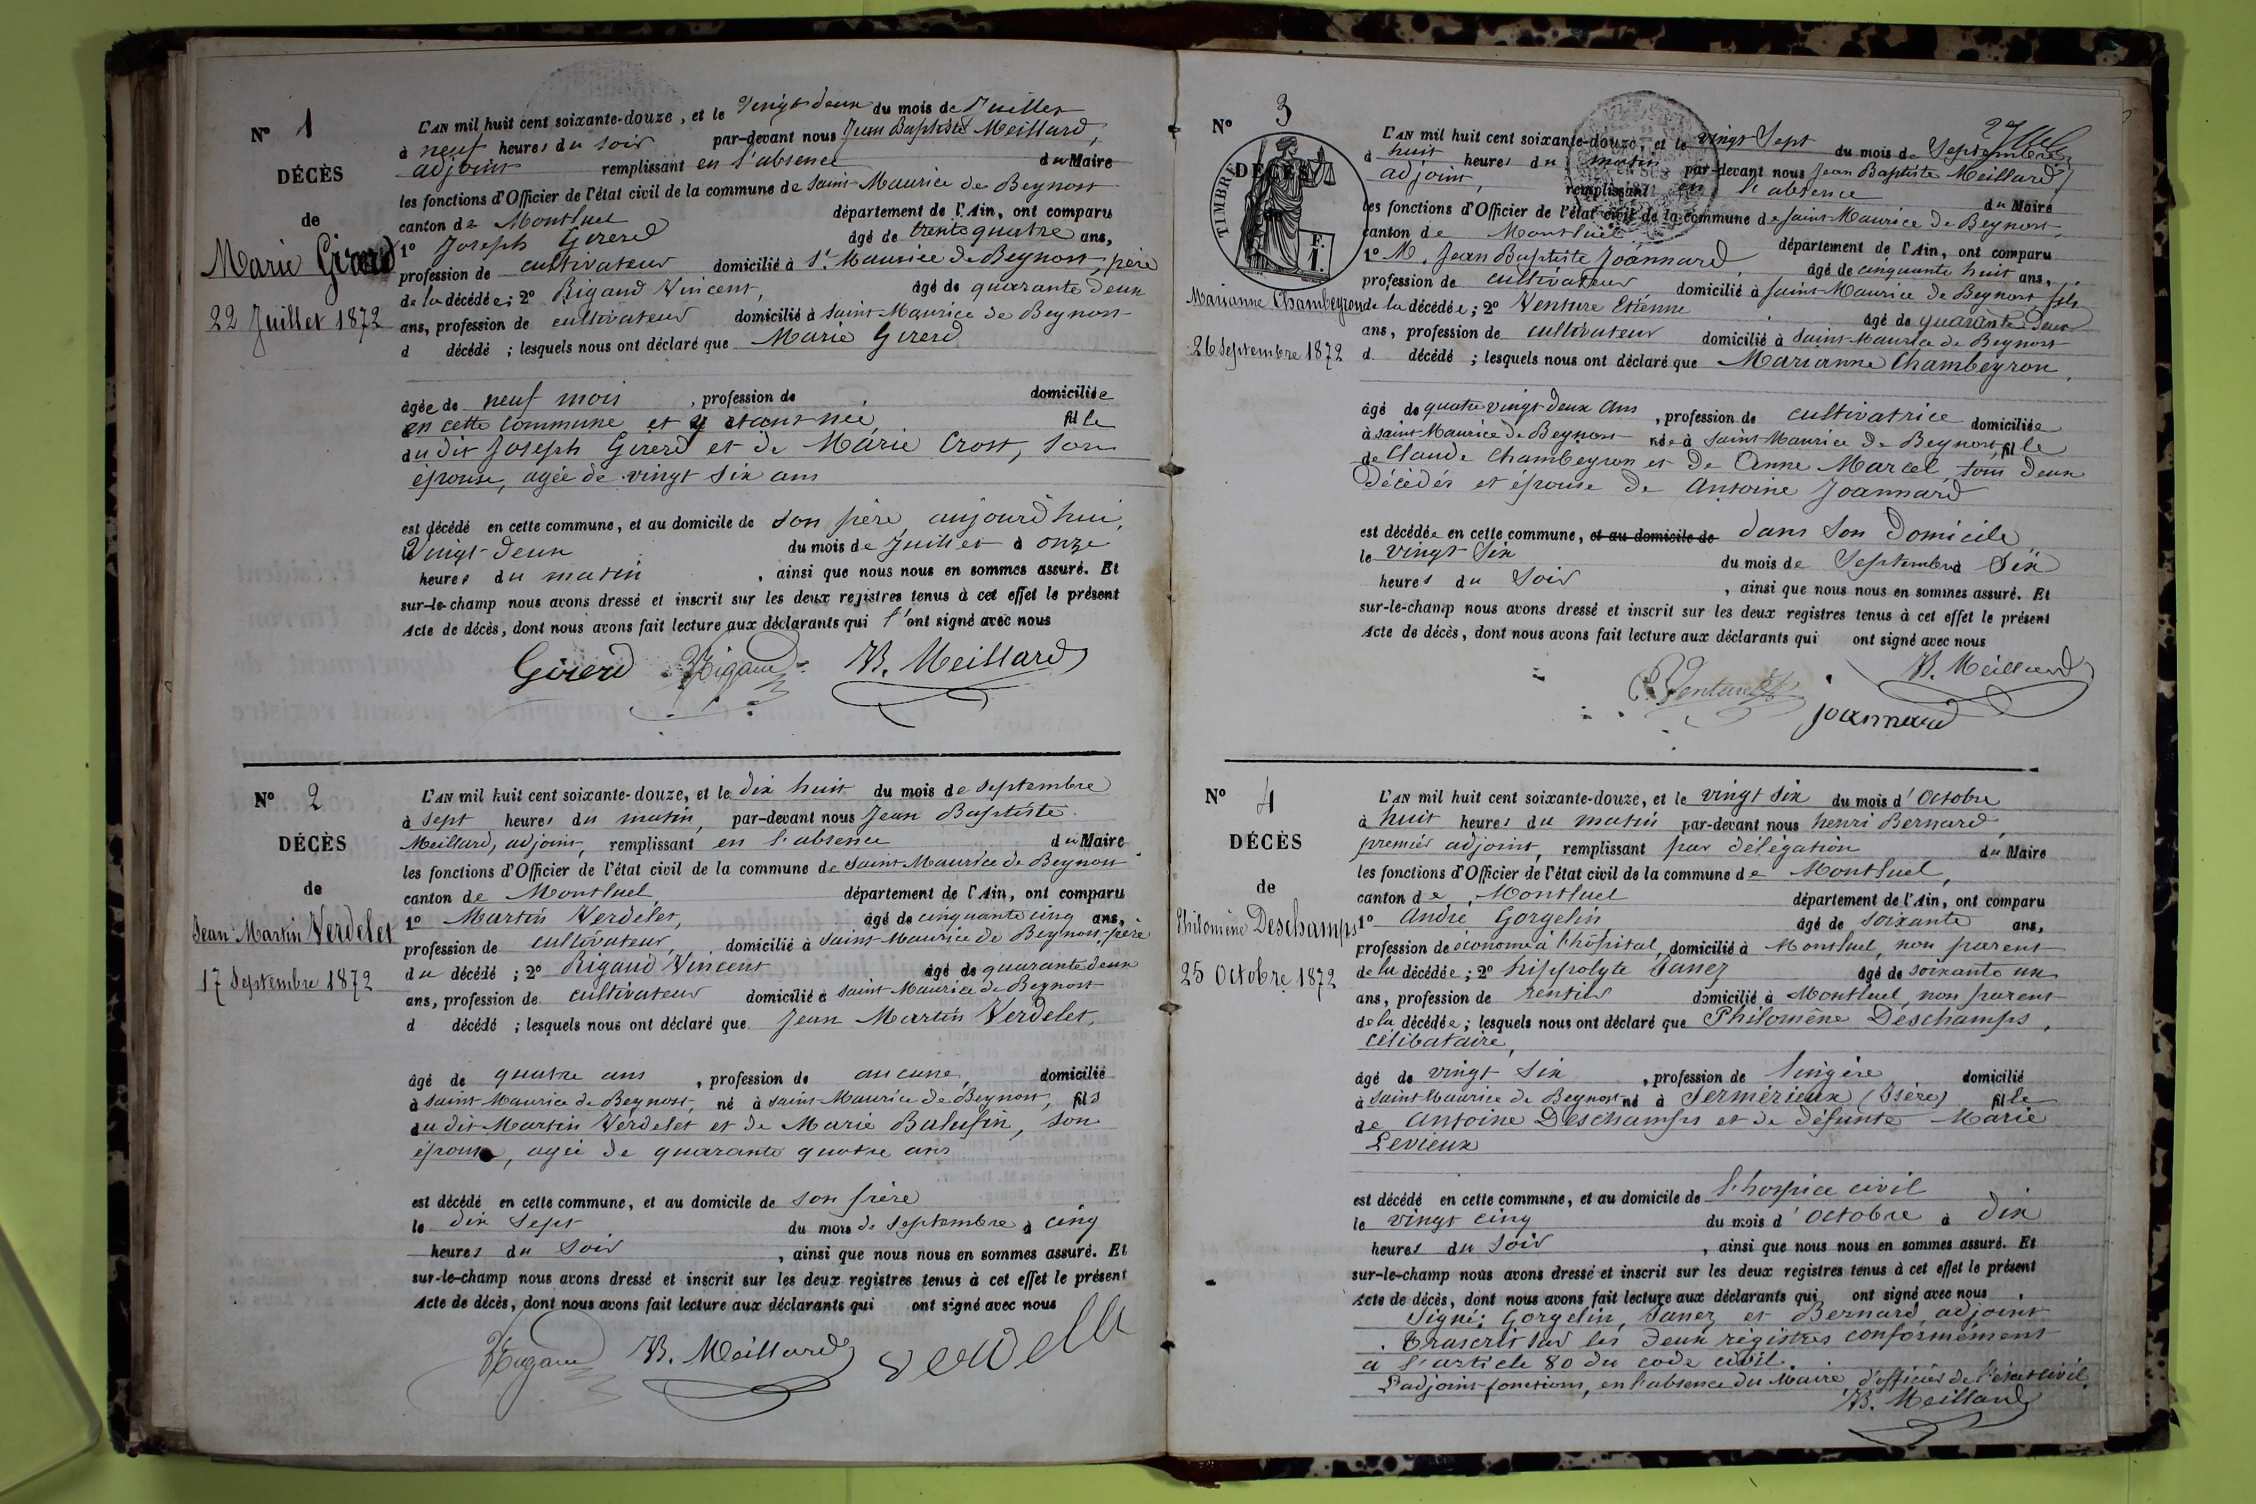 N° 1
DÉCÈS
de
Marie Girerd
22 Juillet 1872
L'AN mil huit cent soixante-douze, et le vingt deux du mois de Juillet
à neuf heures du soir par-devant nous Jean Baptiste Meillard,
adjoint remplissant en l'absence du Maire
les fonctions d'Officier de l'état civil de la commune de Saint Maurice de Beynost
canton de Montluel département de l'Ain, ont comparu
1° Joseph Girerd âgé de trente quatre ans,
profession de cultivateur domicilié à St. Maurice de Beynost, père
de la décédée; 2° Rigaud Vincent, âgé de quarante deux
ans, profession de cultivateur domicilié à Saint-Maurice de Beynost
d décédé ; lesquels nous ont déclaré que Marie Girerd
âgée de neuf mois , profession de domiciliée
en cette commune et y étant née, fille
du dit Joseph Girerd et de Marie Crost, son
épouse, agée de vingt six ans
est décédé en cette commune, et au domicile de son père aujourd'hui,
vingt-deux du mois de Juillet à onze
heures du matin , ainsi que nous nous en sommes assuré. Et
sur-le-champ nous avons dressé et inscrit sur les deux registres tenus à cet effet le présent
Acte de décès, dont nous avons fait lecture aux déclarants qui l'ont signé avec nous
Girerd Rigaud JB. Meillard
N° 2
DÉCÈS
de
Jean Martin Verdelet
17 Septembre 1872
L'AN mil huit cent soixante-douze, et le dix huit du mois de Septembre
à sept heures du matin, par-devant nous Jean Baptiste
Meillard, adjoint, remplissant en l'absence du Maire
les fonctions d'Officier de l'état civil de la commune de Saint Maurice de Beynost
canton de Montluel département de l'Ain, ont comparu
1° Martin Verdelet, âgé de cinquante cinq ans,
profession de cultivateur, domicilié à Saint-Maurice de Beynost, père
du décédé ; 2° Rigaud Vincent âgé de quarante deux
ans, profession de cultivateur domicilié à Saint Maurice de Beynost
d décédé ; lesquels nous ont déclaré que Jean Martin Verdelet,
âgé de quatre ans , profession de aucune, domicilié
à Saint-Maurice de Beynost, né à Saint-Maurice de Beynost, fils
du dit Martin Verdelet et de Marie Balufin, son
épouse, agée de quarante quatre ans
est décédé en cette commune, et au domicile de son père
le dix sept du mois de Septembre à cinq
heures du soir , ainsi que nous nous en sommes assuré. Et
sur-le-champ nous avons dressé et inscrit sur les deux registres tenus à cet effet le présent
Acte de décès, dont nous avons fait lecture aux déclarants qui ont signé avec nous
Rigaud JB. Meillard
N° 3
DÉCÈS
TIMBRE
F.
1.
Marianne Chambeyron
26 Septembre 1872
L'AN mil huit cent soixante-douze, et le vingt Sept du mois de Septembre
à huit heures du matin par-devant nous Jean Baptiste Meillard,
adjoint, remplissant en l'absence du Maire
les fonctions d'Officier de l'état civil de la commune de Saint-Maurice de Beynost,
canton de Montluel département de l'Ain, ont comparu
1° M. Jean Baptiste Joannard, âgé de cinquante huit ans,
profession de cultivateur domicilié à Saint-Maurice de Beynost, fils
de la décédée; 2° Venture Etienne âgé de quarante deux
ans, profession de cultivateur domicilié à Saint-Maurice de Beynost
d décédé ; lesquels nous ont déclaré que Marianne Chambeyron,
âgé de quatre vingt deux ans , profession de cultivatrice domiciliée
à Saint-Maurice de Beynost née à Saint-Maurice de Beynost, fille
de Claude Chambeyron et de Anne Marcel, tous deux
décédés et épouse de Antoine Joannard
est décédée en cette commune, et au domicile de dans son domicile
le vingt six du mois de Septembre à six
heures du soir , ainsi que nous nous en sommes assuré. Et
sur-le-champ nous avons dressé et inscrit sur les deux registres tenus à cet effet le présent
Acte de décès, dont nous avons fait lecture aux déclarants qui ont signé avec nous
JB. Meillard
Joannard
N° 4
DÉCÈS
de
Philomène Deschamps
25 Octobre 1872
L'AN mil huit cent soixante-douze, et le vingt six du mois d'Octobre
à huit heures du matin par-devant nous henri Bernard,
premier adjoint, remplissant par délégation du Maire
les fonctions d'Officier de l'état civil de la commune de Montluel,
canton de Montluel département de l'Ain, ont comparu
1° André Gorgelin âgé de soixante ans,
profession de économe à l'hôpital, domicilié à Montluel, non parent
de la décédée; 2° hippolyte Janez âgé de soixante un
ans, profession de rentier domicilié à Montluel, non parent
de la décédée; lesquels nous ont déclaré que Philomène Deschamps,
célibataire,
âgé de vingt six , profession de lingère domicilié
à Saint Maurice de Beynost né à Sermérieux (Isère) fille
de Antoine Deschamps et de défunte Marie
Levieux
est décédé en cette commune, et au domicile de l'hospice civil
le vingt cinq du mois d'Octobre à dix
heures du soir , ainsi que nous nous en sommes assuré. Et
sur-le-champ nous avons dressé et inscrit sur les deux registres tenus à cet effet le présent
Acte de décès, dont nous avons fait lecture aux déclarants qui ont signé avec nous
Signé: Gorgelin, Janez et Bernard, adjoint
Trascrit sur les deux régistres conformément
à l'article 80 du code civil.
L'adjoint fonctions, en l'absence du Maire, d'officier de l'état civil
JB. Meillard